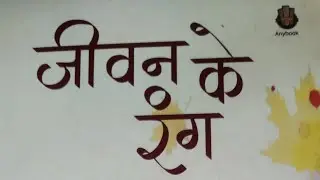 जीवन के
रंग
Anybook